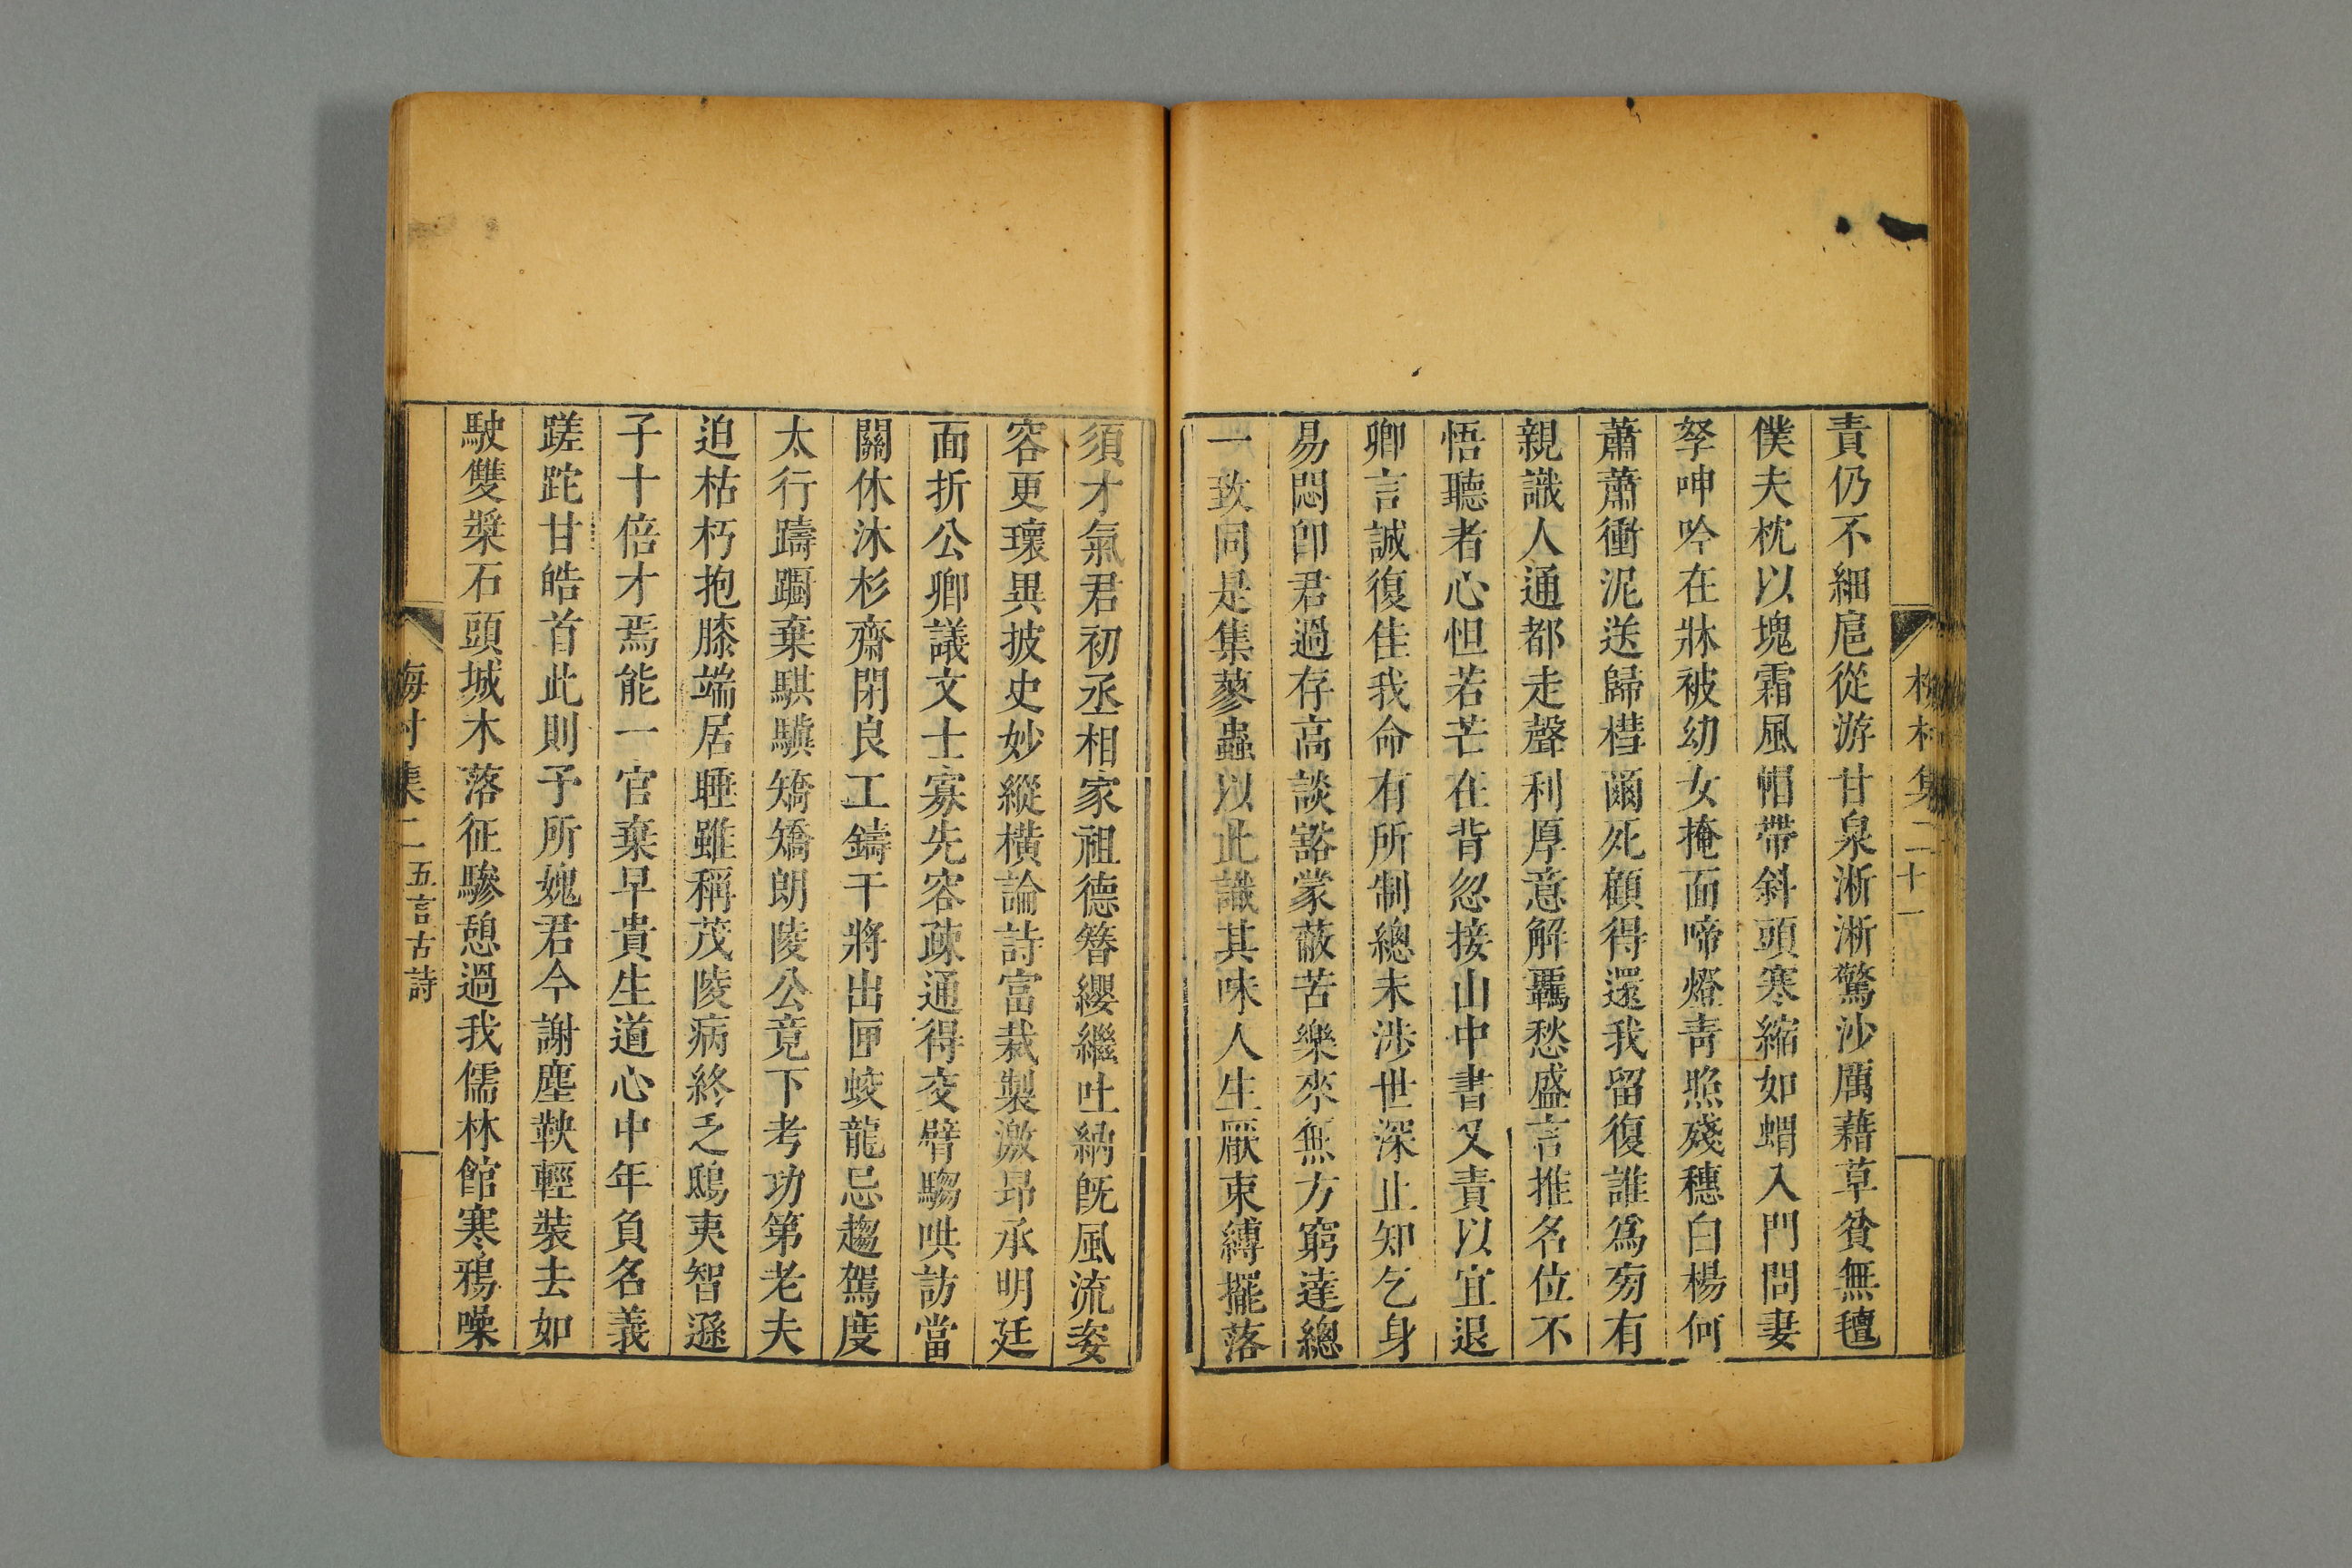 責仍不細扈從游甘泉淅淅驚沙厲藉草貧無氊
僕夫枕以塊霜風帽帶斜頭寒縮如蝟入門問妻
孥呻吟在牀被幼女掩面啼燈青照殘穗白楊何
蕭蕭衝泥送歸槥爾死顧得還我留復誰爲芻有
親識人通都走聲利厚意解羈愁盛言推名位不
悟聽者心怛若芒在背忽接山中書又責以宜退
卿言誠復佳我命有所制總未涉世深止知乞身
易悶卽君過存高談豁蒙蔽苦樂來無方窮達總
一致同是集蓼蟲以此識其味人生厭束縛擺落
須才氣君初丞相家祖德簪纓繼吐納旣風流姿
容更瓌異披史妙縱橫論詩富裁製激昂承明廷
面折公卿議文士寡先容疎通得交臂騶哄訪當
關休沐杉齋閉良工鑄干將出匣蛟龍忌趨駕度
太行躊躕棄騏驥矯矯朗陵公竟下考功第老夫
迫枯朽抱膝端居睡雖稱茂陵病終乏鴟夷智遜
子十倍才焉能一官棄早貴生道心中年負名義
蹉跎甘皓首此則予所媿君今謝塵鞅輕裝去如
駛雙槳石頭城木落征驂憩過我儒林館寒鴉噪
梅村集二十一
梅村集二 五言古詩